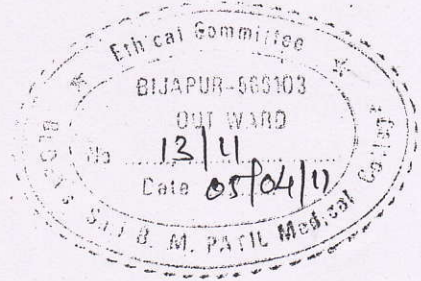 Ethical Committee
BIJAPUR-586103
OUT WARD
No 13/11
Date 05/04/11
B. M. PATIL Medical College